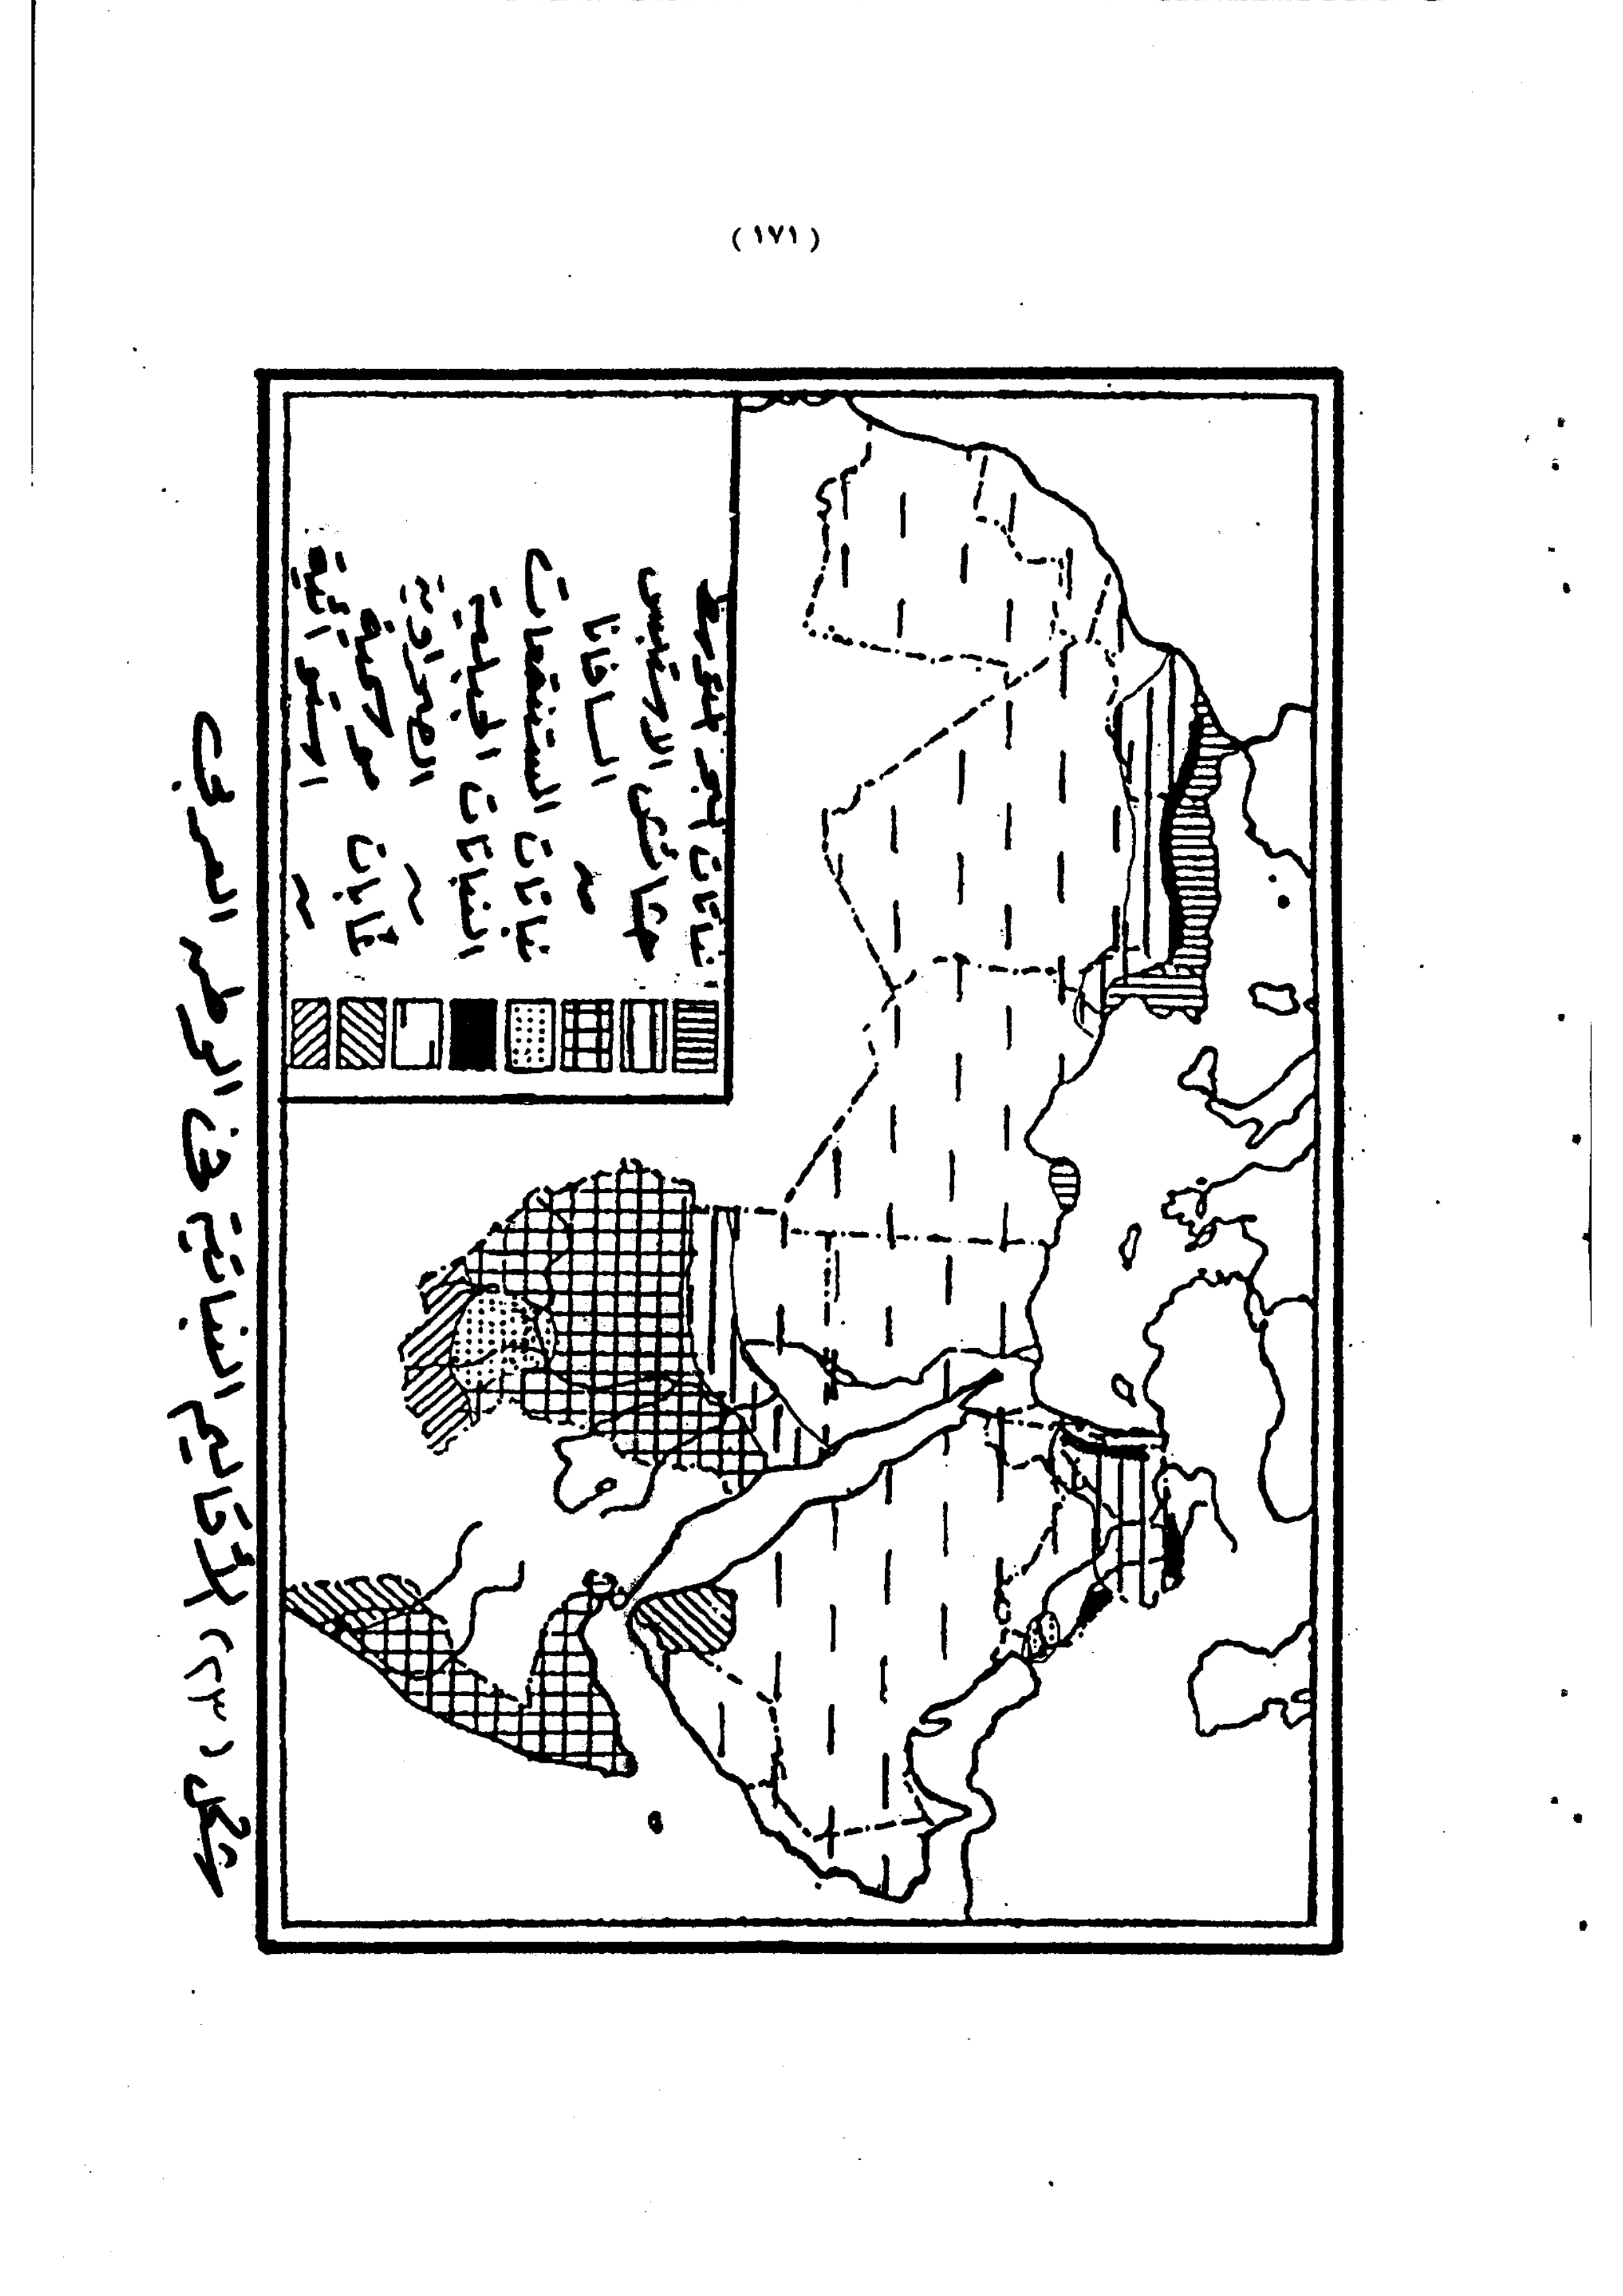 (١٧١)
نباتات البحر المتوسط
حشائش الاستبس
~ السافانا
نباتات المستنقعات
النباتات الجبلية
~ الصحراوية
غابات موسمية
~ استوائية
شكل (٢٣) الأقاليم النباتية في الوطن العربي